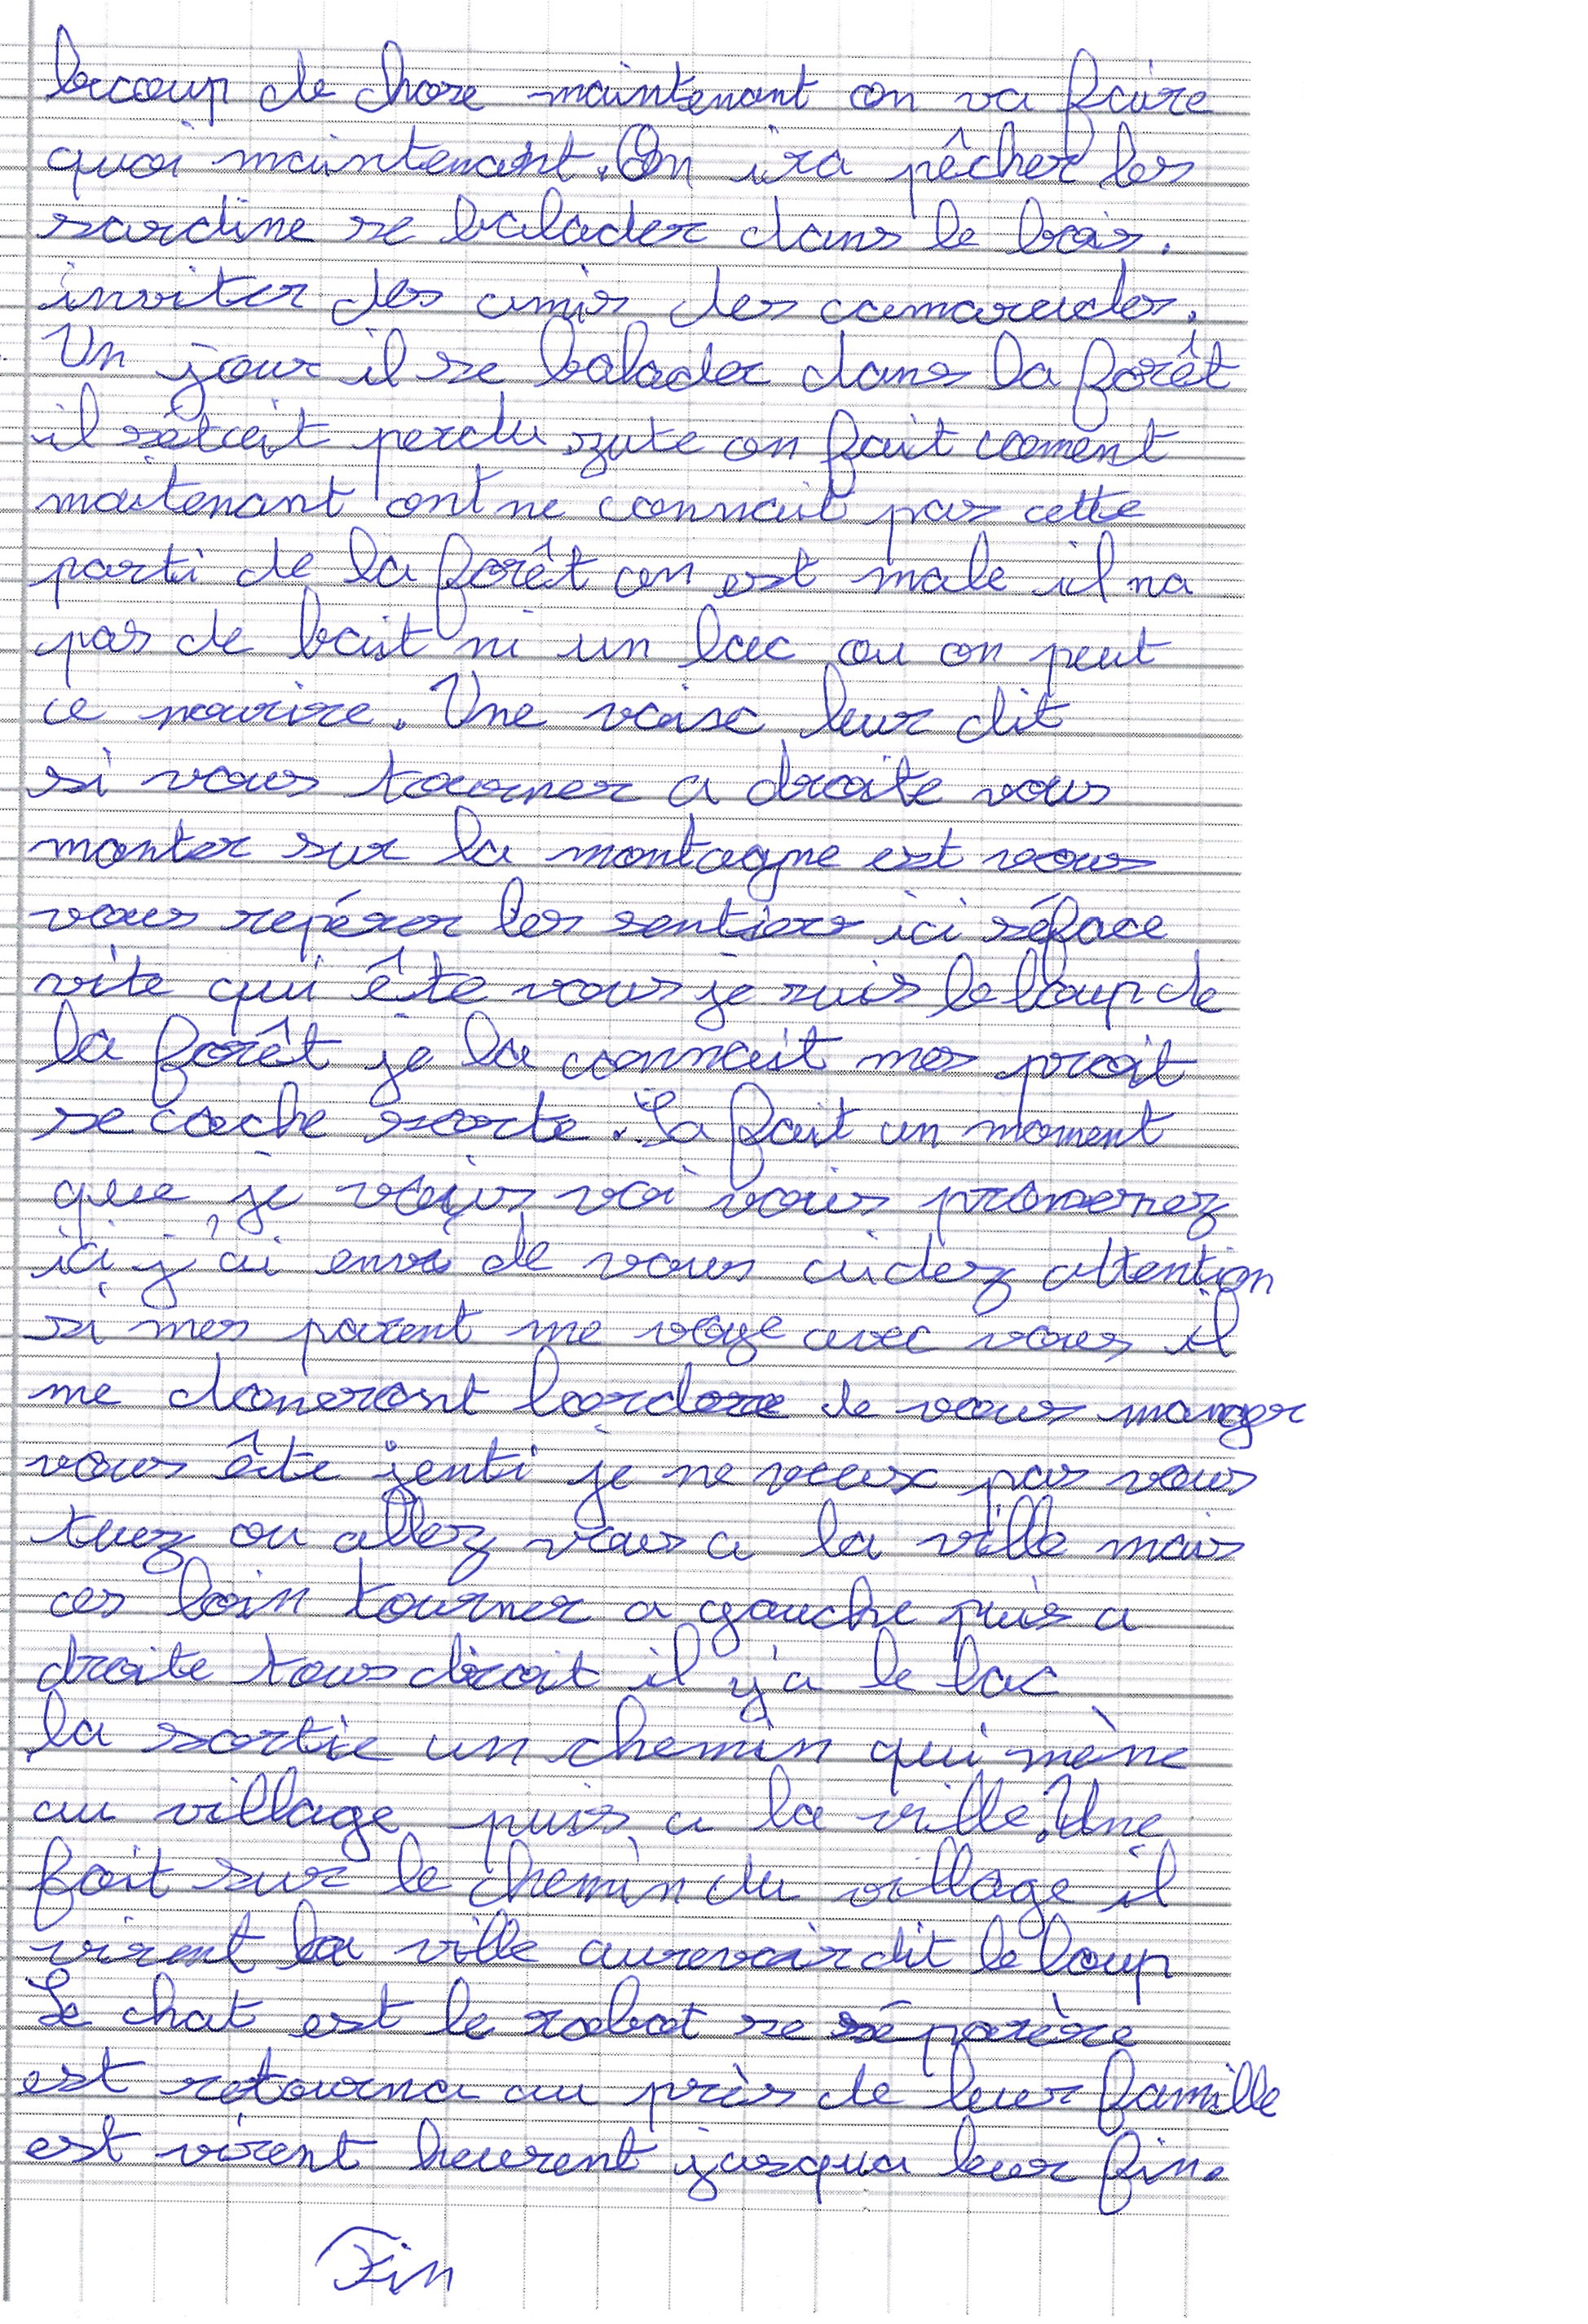 becoup de chose maintenant on va faire
quoi maintenant. On ira pêcher les
sardine se balader dans le bois.
inviter des amis des camarades.
Un jour il se balader dans la forêt
il sétait perdu zute on fait coment
maitenant ont ne connait pas cette
parti de la forêt on est male il na
pas de boit ni un lac ou on peut
ce nourire. Une voise leur dit
si vous tourner a droite vous
monter sur la montagne est vous
vous repérer les sentiers ici séface
vite qui ête vous je suis le loup de
la forêt je la connait mes proit
se cache sorte. Sa fait un moment
que je vous voi vous promenez
ici j'ai envi de vous aidez attention
si mes parent me voye avec vous il
me doneront lordore de vous manger
vous ête jenti je ne veux pas vous
tuez ou allez vous a la ville mais
ces loin tourner a gauche puis a
droite tous droit il y'a le lac
la sortie un chemin qui mène
au village puis a la ville. Une
foit sur le chemin du village il
virent la ville aurevoir dit le loup
Le chat est le robot se séparère
est retourna au près de leur famille
est virent heurent jusqua leur fin.
Fin